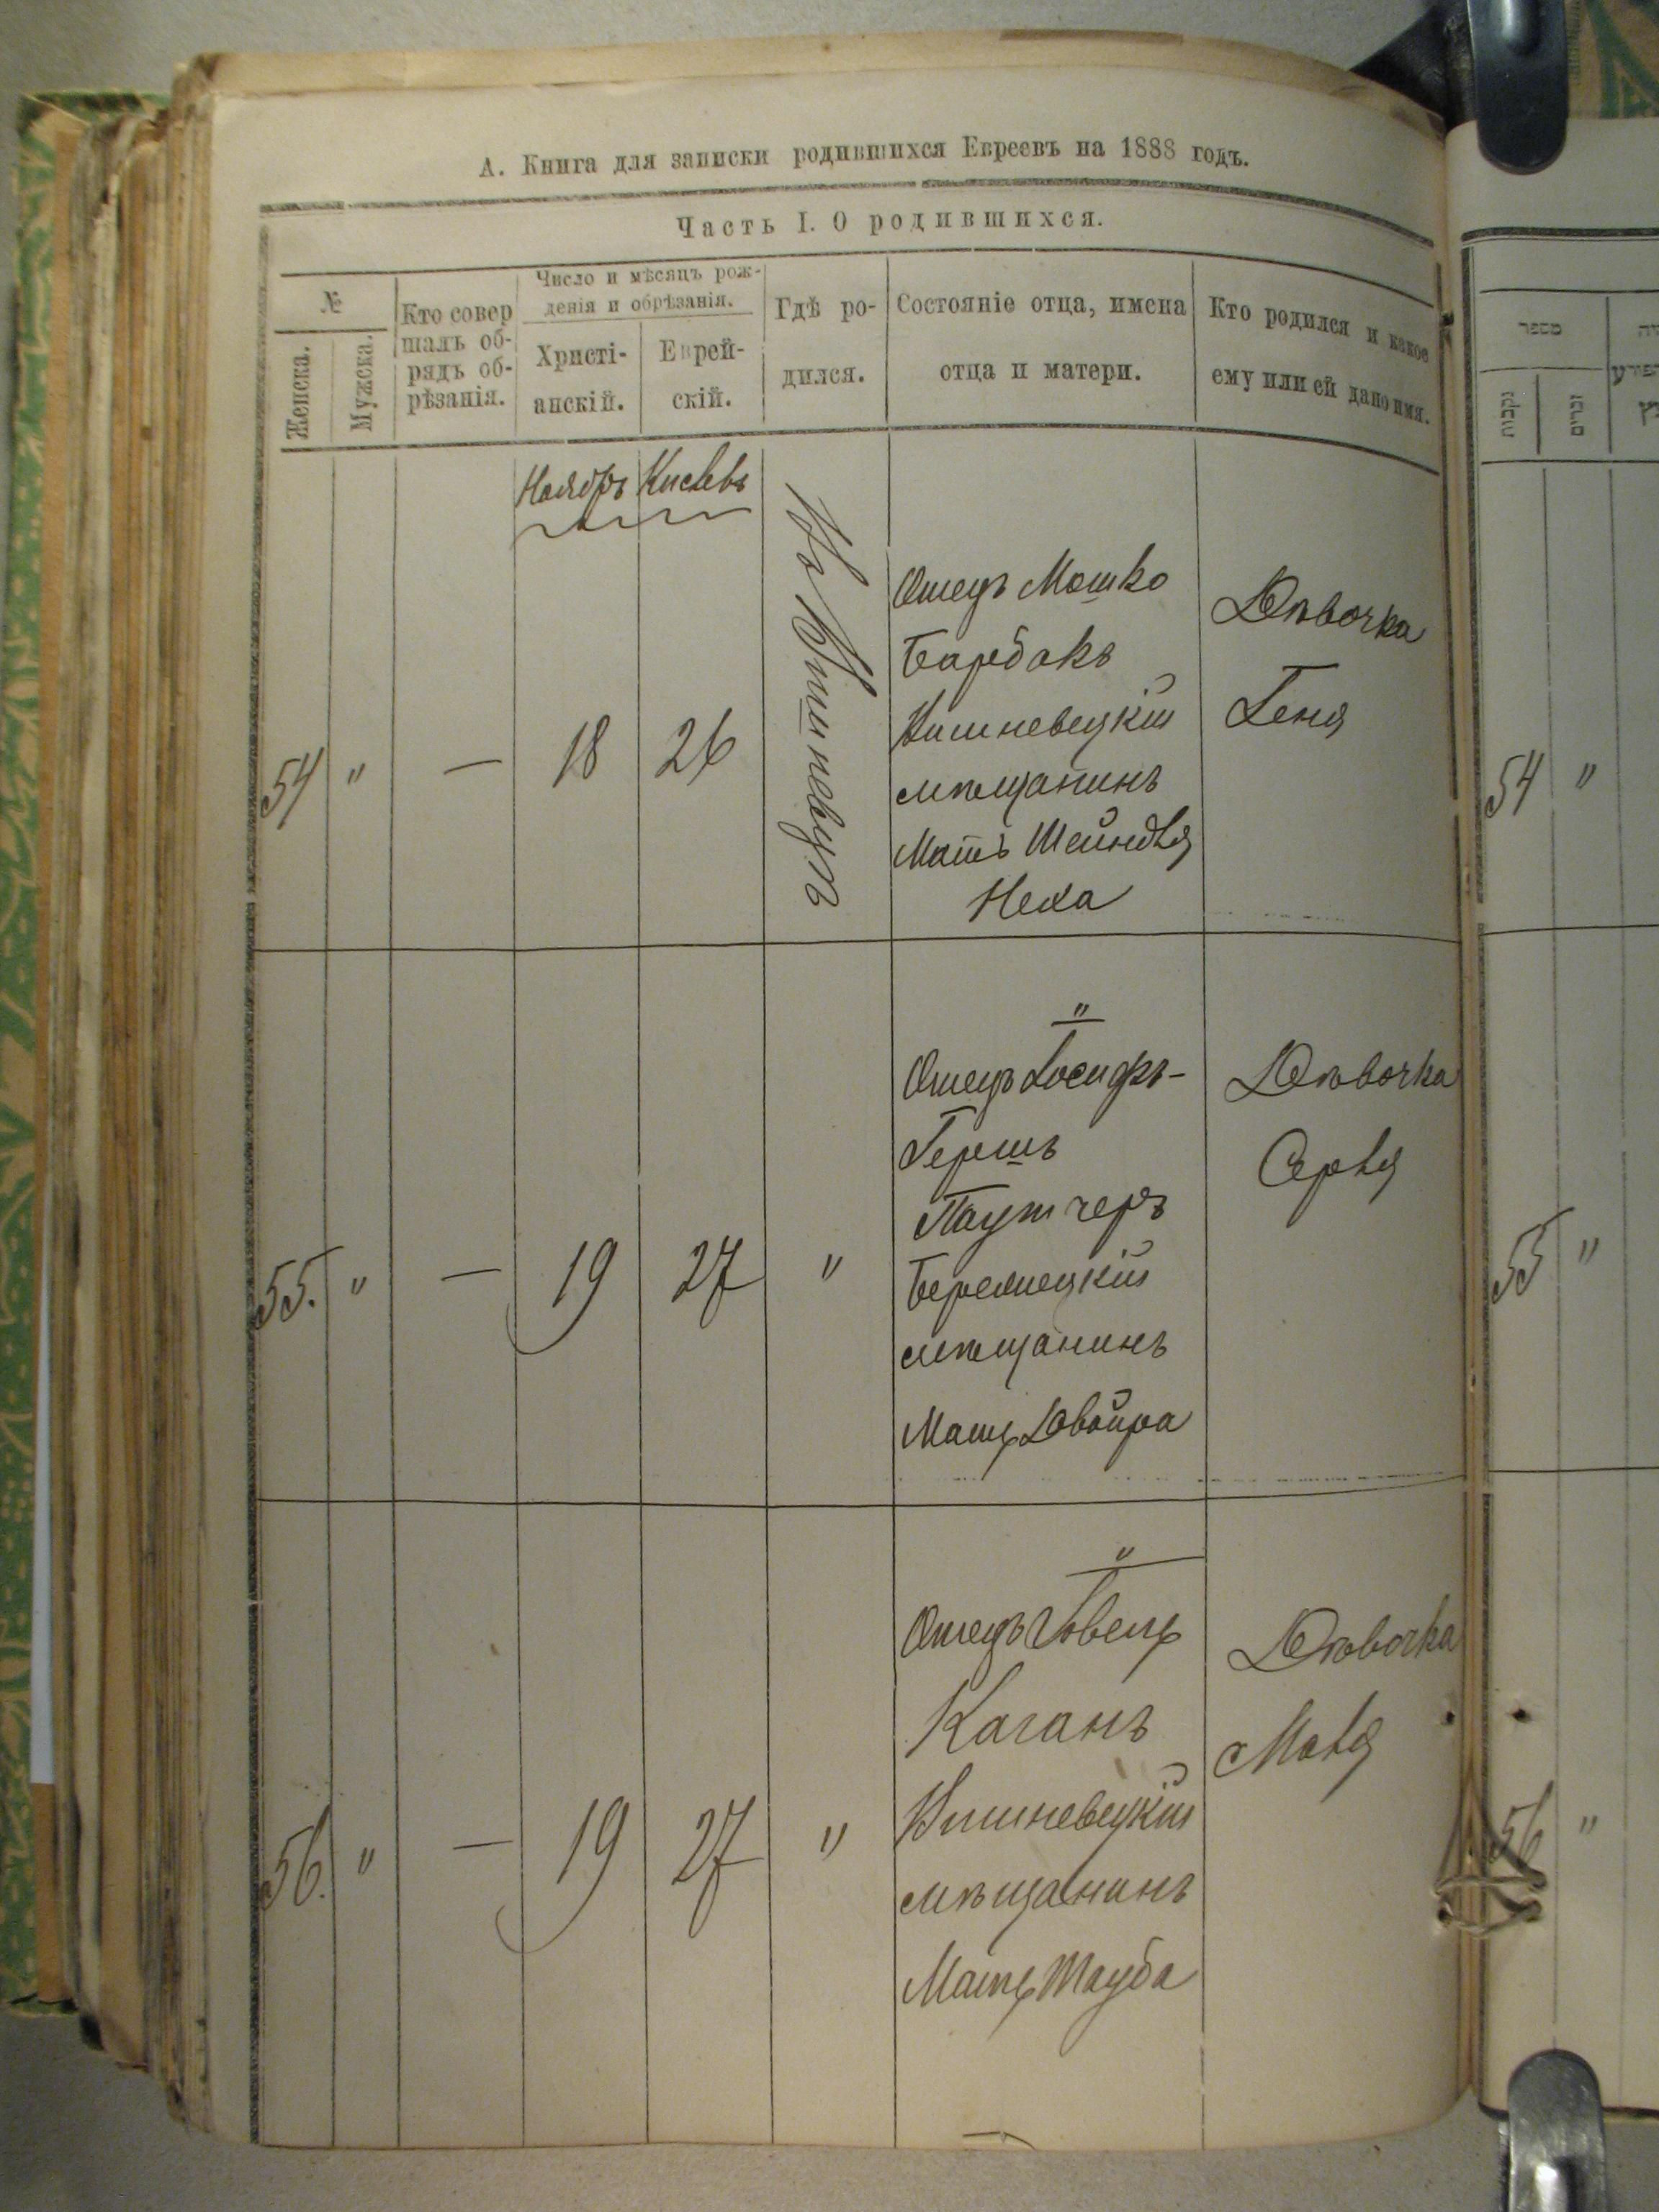 А. Книга для записки родившихся Евреевъ на 1888 годъ.
Часть I. О родившихся.
№
Женска.
Мужска.
Кто совер
шалъ об-
рядъ об-
рѣзанія.
Число и мѣсяцъ рож-
денія и обрѣзанія.
Христі-
анскій.
Еврей-
скій.
Гдѣ ро-
дился.
Состояніе отца, имена
отца и матери.
Кто родился и какое
ему или ей дано имя.
מספר
נקבות
זכרים
Ноябрь Кислевъ
54 " — 18 26
Въ Вишневцѣ
Отецъ Мошко
Барбакъ
Вишневецкій
мѣщанинъ
Мать Шейндля
Неха
Дѣвочка
Геня
54 "
55. " — 19 27 "
"
Отецъ Іосифъ-
Гершъ
Паутчеръ
Бережецкій
мѣщанинъ
Мать Двойра
Дѣвочка
Серля
55 "
56. " — 19 27 "
"
Отецъ
Каганъ
Вишневецкій
мѣщанинъ
Мать Тауба
Дѣвочка
Маля
56 "